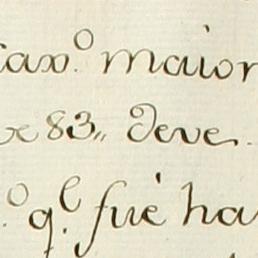 iaxº. maior
e 83,, deve.
º. q.l fué ha